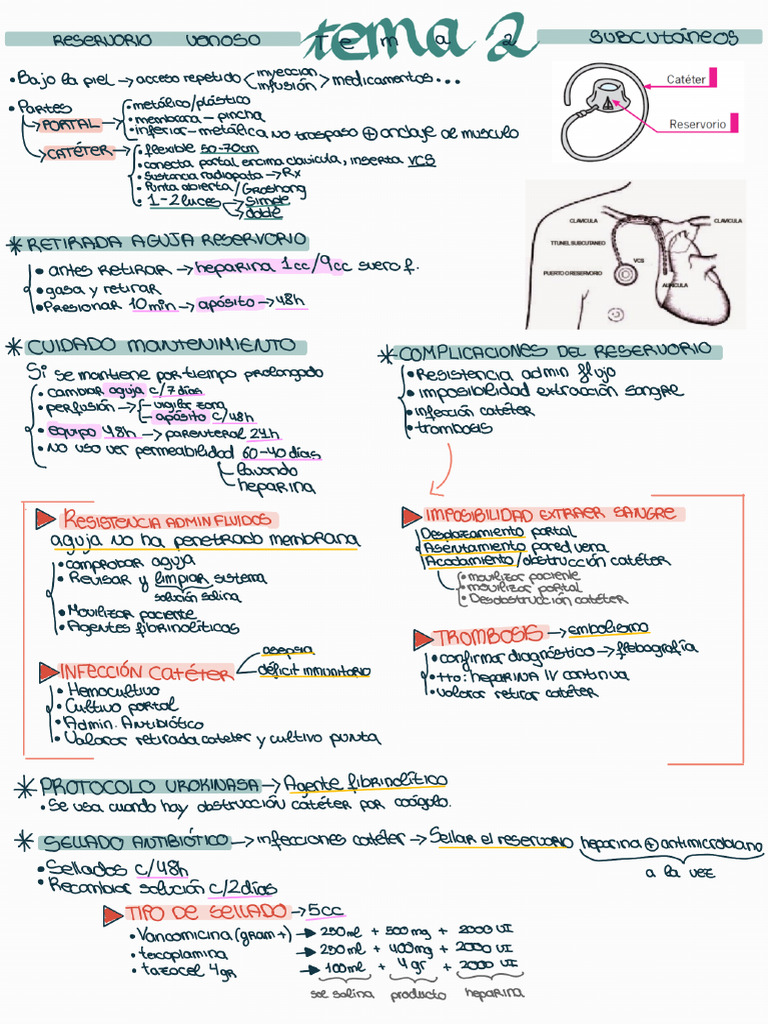 RESERVORIO VENOSO Tema 2 SUBCUTÁNEOS
tema 2
• Bajo la piel → acceso repetido < inyección infusión > medicamentos...
• Partes
→ PORTAL →
• metálico/plástico
• membrana - pincha
• inferior - metálica no traspaso ⊕ anclaje al musculo
→ CATÉTER →
• flexible 50-70cm
• conecta portal encima clavicula, inserta VCS
• Sustancia radiopata → Rx
• Punta abierta/Groshong
• 1-2 luces → simple
→ doble
Catéter
Reservorio
CLAVICULA
CLAVICULA
TTUNEL SUBCUTANEO
VCS
PUERTO O RESERVORIO
AURICULA
* RETIRADA AGUJA RESERVORIO
• antes retirar → heparina 1cc/9cc suero f.
• gasa y retirar
• Presionar 10min → apósito → 48h
* CUIDADO MANTENIMIENTO
Si se mantiene por tiempo prolongado
• cambiar aguja c/7días
• perfusión → - vigilar zona
- apósito c/48h
• equipo 48h → parenteral 24h
• No uso ver permeabilidad 60-40 días
lavando
heparina
* COMPLICACIONES DEL RESERVORIO
• Resistencia admin flujo
• imposibilidad extracción sangre
• infección catéter
• trombosis
RESISTENCIA ADMIN FLUIDOS
aguja no ha penetrado membrana
• comprobar aguja
• Revisar y limpiar sistema
solución salina
• Movilizar paciente
• Agentes fibrinolíticos
INFECCIÓN CATÉTER
asepsia
déficit inmunitario
• Hemocultivo
• Cultivo portal
• Admin. Antibiótico
• Valorar retirada cateter y cultivo punta
IMPOSIBILIDAD EXTRAER SANGRE
Desplazamiento portal
Asentamiento pared vena
Acodamiento/obstrucción catéter
• movilizar paciente
• movilizar portal
• Desobstrucción catéter
TROMBOSIS → embolismo
• confirmar diagnóstico → flebografía
• tto: heparina IV continua
• valorar retirar catéter
* PROTOCOLO UROKINASA → Agente fibrinolítico
• Se usa cuando hay obstrucción catéter por coágulo.
* SELLADO ANTIBIÓTICO → infecciones catéter → Sellar el reservorio heparina ⊕ antimicrobiano
a la vez
• Sellados c/48h
• Recambiar solución c/2días
TIPO DE SELLADO → 5cc
• Vancomicina (gram+) → 250ml + 500mg + 2000 UI
• tecoplamina → 250ml + 400mg + 2000 UI
• tazocel 4gr → 100ml + 4gr + 2000 UI
sol salina producto heparina